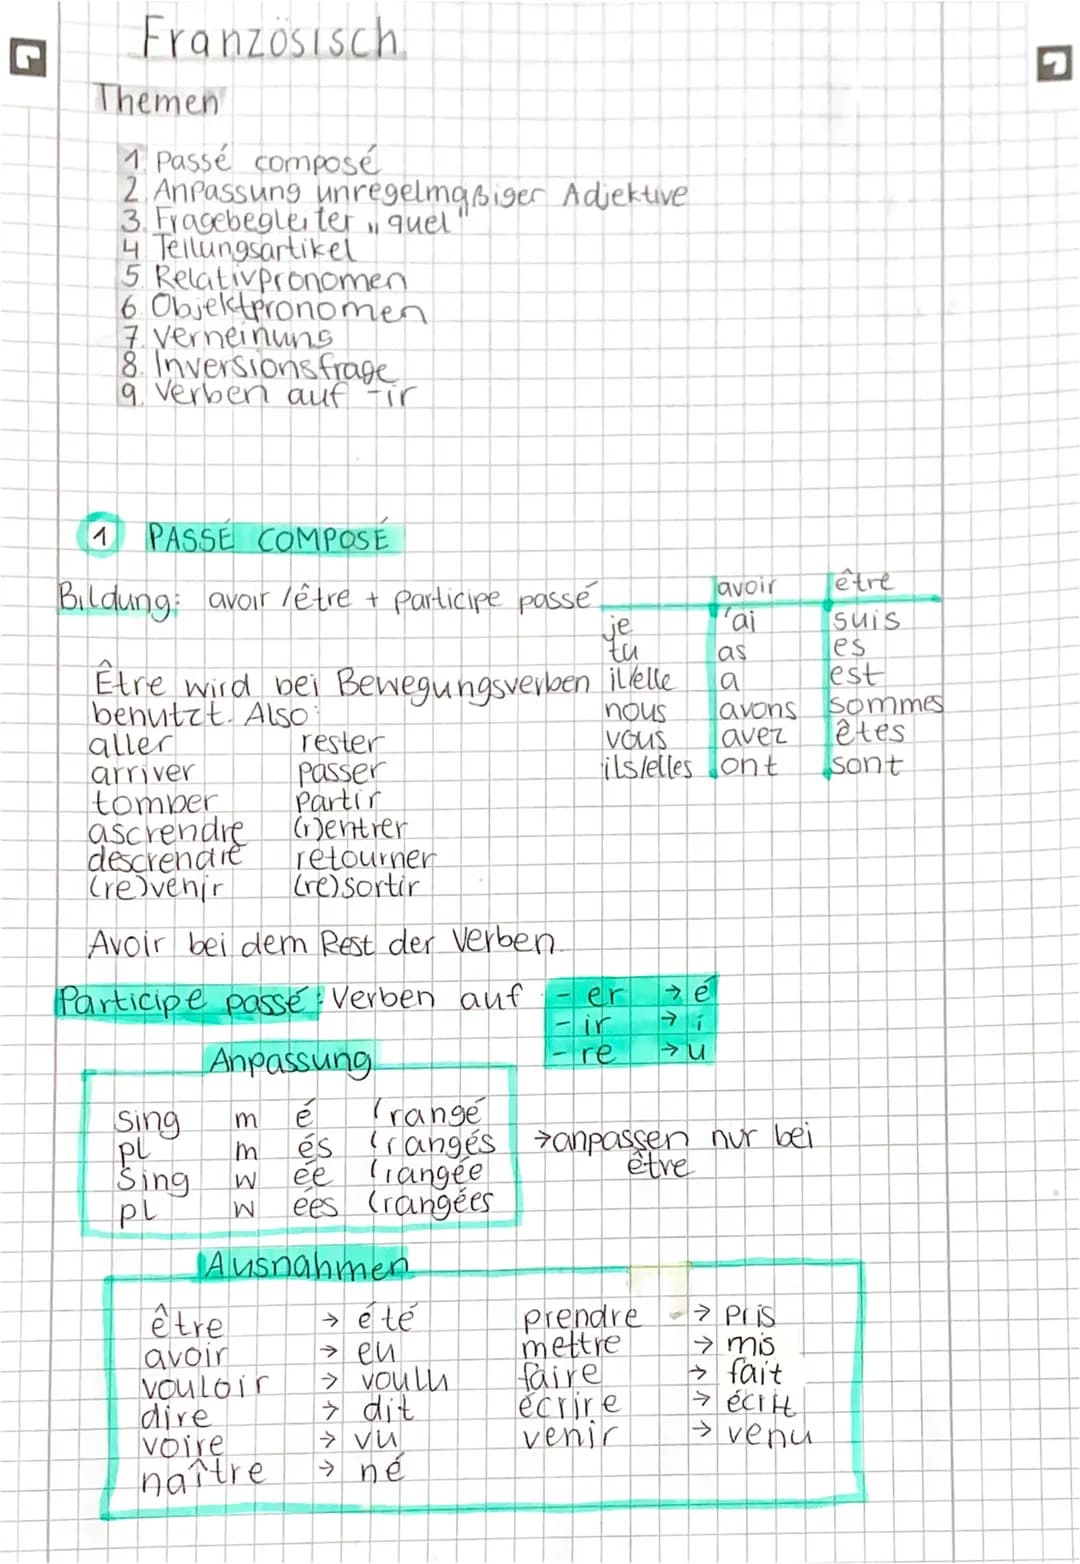 Französisch
Themen
1. Passé composé
2. Anpassung unregelmäßiger Adjektive
3. Fragebegleiter „quel"
4 Teilungsartikel
5. Relativpronomen
6 Objektpronomen
7. Verneinung
8. Inversionsfrage
9. Verben auf -ir
1 PASSÉ COMPOSÉ
Bildung: avoir /être + Participe passé
avoir être
je 'ai suis
tu as es
il/elle a est
nous avons sommes
vous avez êtes
ils/elles ont sont
Être wird bei Bewegungsverben
benutzt. Also:
aller rester
arriver passer
tomber partir
ascrendre (r)entrer
descrendre retourner
(re)venir (re)sortir
Avoir bei dem Rest der Verben.
Participe passé: Verben auf -er → é
-ir → i
-re → u
Anpassung
Sing m é (rangé
pl m és (rangés
Sing w ée (rangée
pl w ées (rangées
→anpassen nur bei
être
Ausnahmen
être → été prendre → pris
avoir → eu mettre → mis
vouloir → voulu faire → fait
dire → dit écrire → écrit
voire → vu venir → venu
naître → né